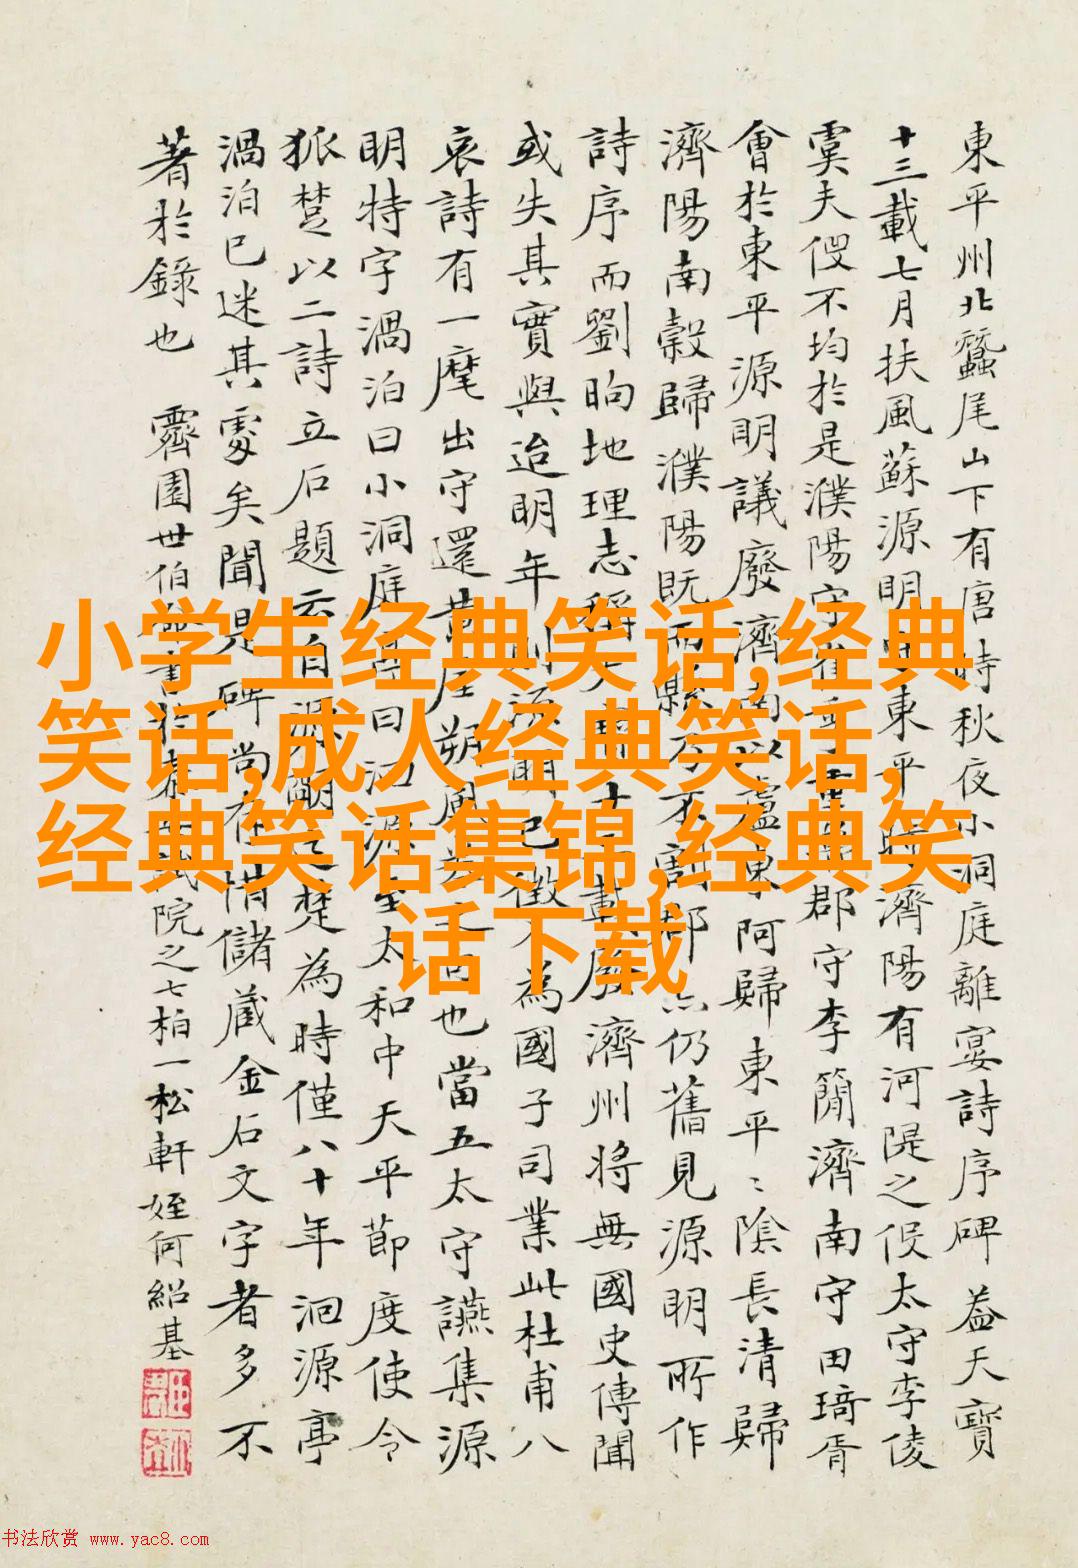 東平州北蠶尾山下有唐時秋夜小洞庭離宴詩序碑蓋天寶
十三載七月扶風蘇源明 東平 濟陽有河隄之役太守李倰
虞夫役不均於是濮陽守崔 郡守李簡濟南守田琦胥
會於東平源明議廢濟南以盧東阿歸東平〻陰長清歸
濟陽南穀歸濮陽既而縣 郡亦仍舊見源明所作
詩序而劉昫地理志稱 廢濟州將無國史傳聞
或失其實與迨明年 源明已徵為國子司業此杜甫八
哀詩有一麾出守還黃屋朔風 也當五太守讌集源
明特字渦泊曰小洞庭 曰洄源 太和中天平節度使令
狐楚以二詩立石題云自源明 楚為時僅八十年洄源亭
渦泊已迷其處矣聞是碑尚在惜儲蔵金石文字者多不
著於錄也 霽園世伯 院之七柏一松軒 姪何紹基
小学生经典笑话,经典
笑话,成人经典笑话,
经典笑话集锦,经典笑
话下载
书法欣赏 www.yac8.com